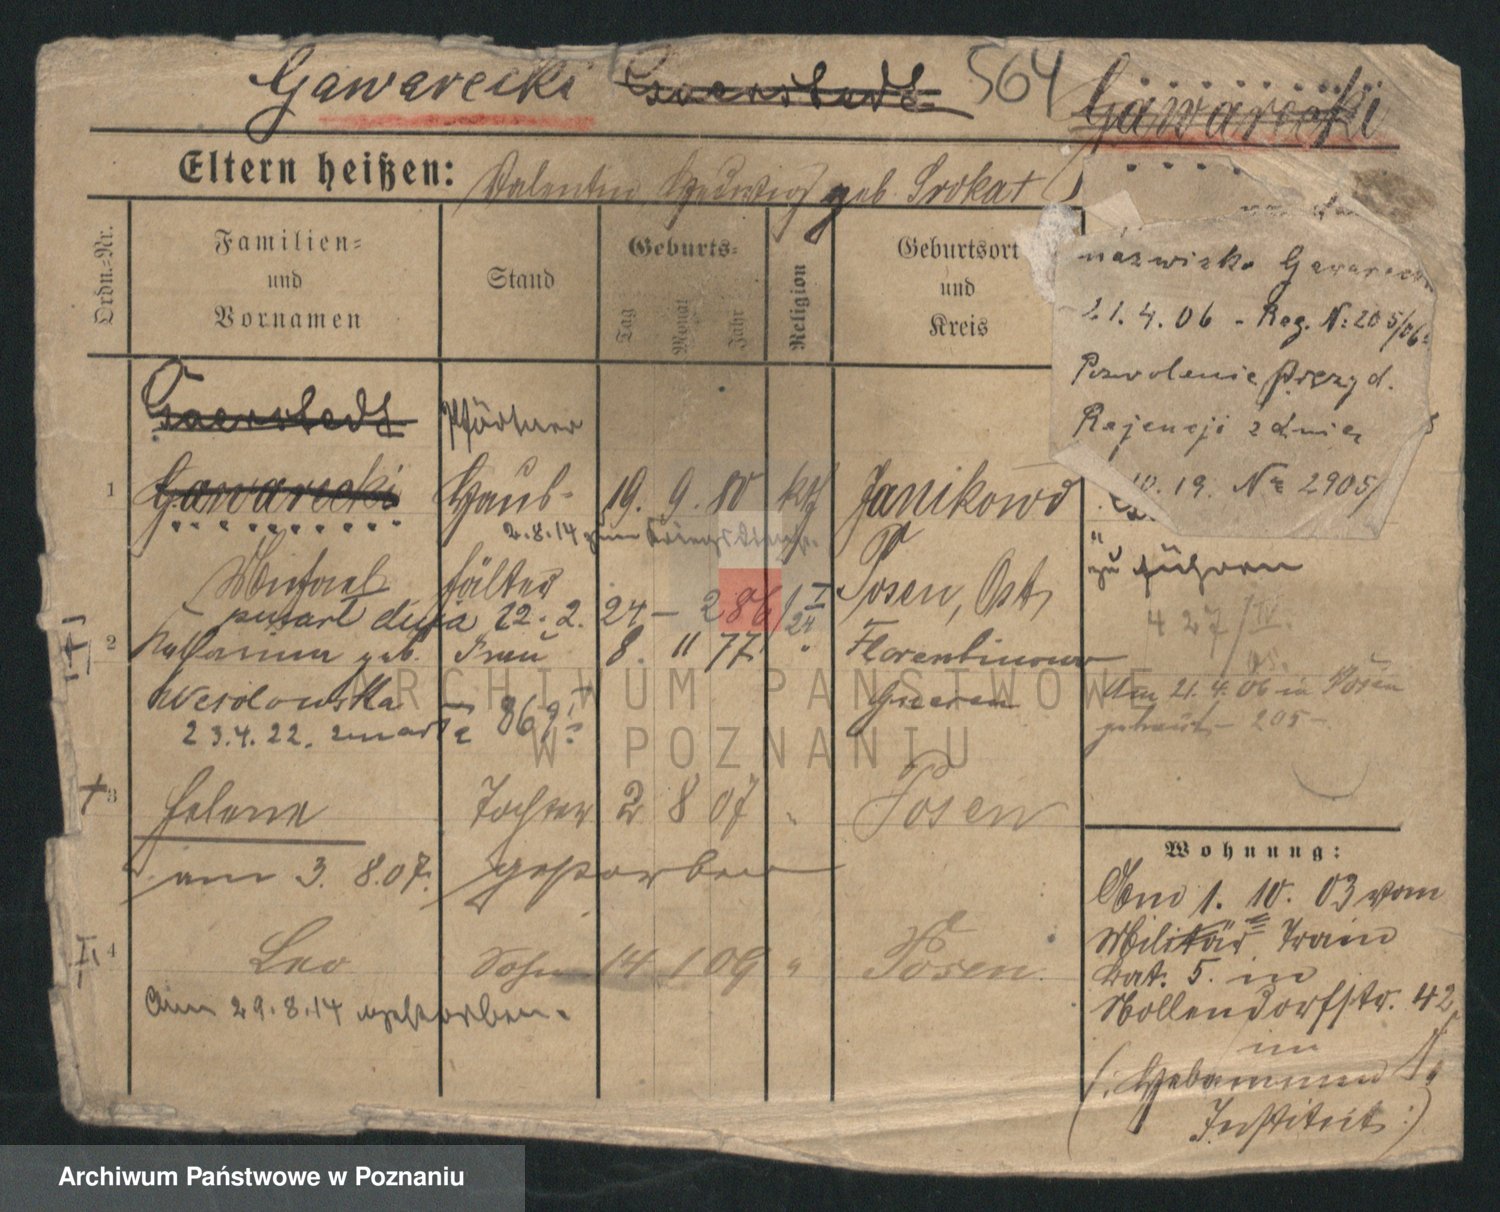 Gawarecki Gaerstedt 564 Gawarecki
Eltern heißen: Valentin Hedwig geb. Srokat
Ordn.-Nr.
Familien-
und
Vornamen
Stand
Geburts-
Tag
Monat
Jahr
Religion
Geburtsort
und
Kreis
nazwisko Gawarecki
21.4.06 - Reg. N: 205/06
Pozwolenie Prezyd.
Rejencji z dnia
10.19. Nr 2905/
zu führen
427/IV.
05.
Am 21.4.06 in Posen
getraut - 205 -
Gaerstedt Pförtner
1 Gawarecki Haus- 19. 9. 80 kth Janikowo
2.8.14 zum
Michael hälter Posen, Ost
umarł dnia 22. 2. 24 - 286/I
24
2 Katharina geb. Frau 8. " 77 " Florentinowo
Wesolowska
23.4.22. zmarła - 869/I
3 Helene Tochter 2 8 07 " Posen
am 3. 8.07. gestorben
4 Leo Sohn 14 1 09 " Posen.
Am 29.8.14 gestorben.
Wohnung:
Am 1. 10. 03 vom
Militär Train
Bat. 5. in
Nollendorfstr. 42
im
(: Hebammen
Institut :)
ARCHIWUM PAŃSTWOWE
W POZNANIU
Archiwum Państwowe w Poznaniu